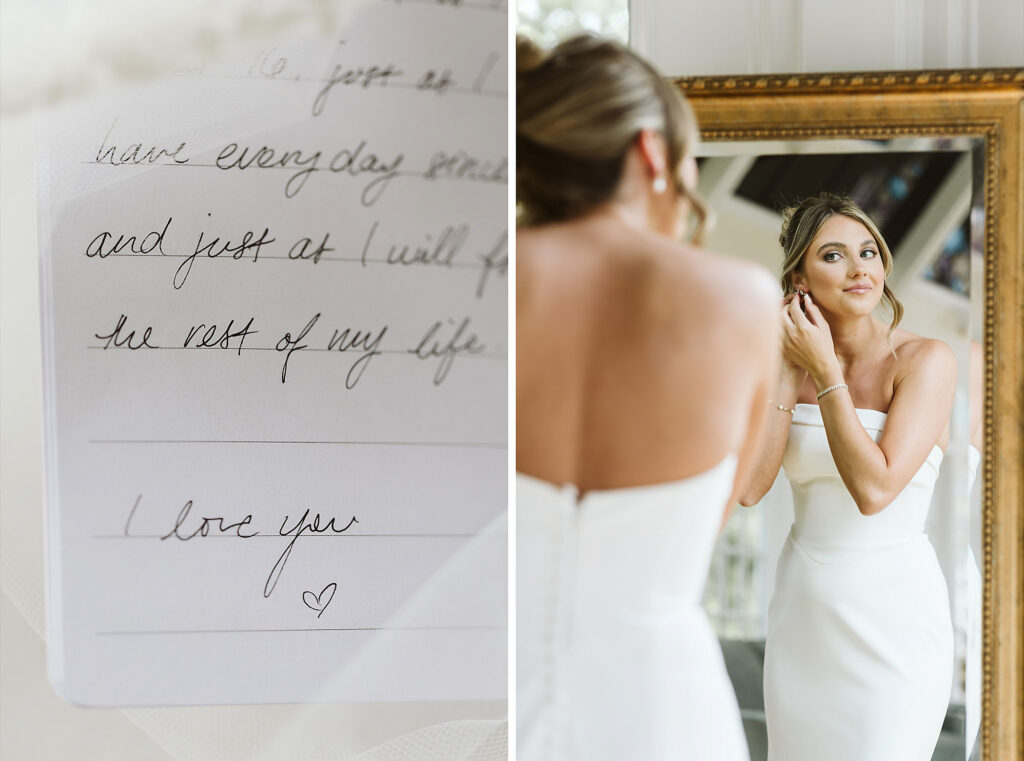 just at I
have everyday since
and just at I will f
the rest of my life.
I love you